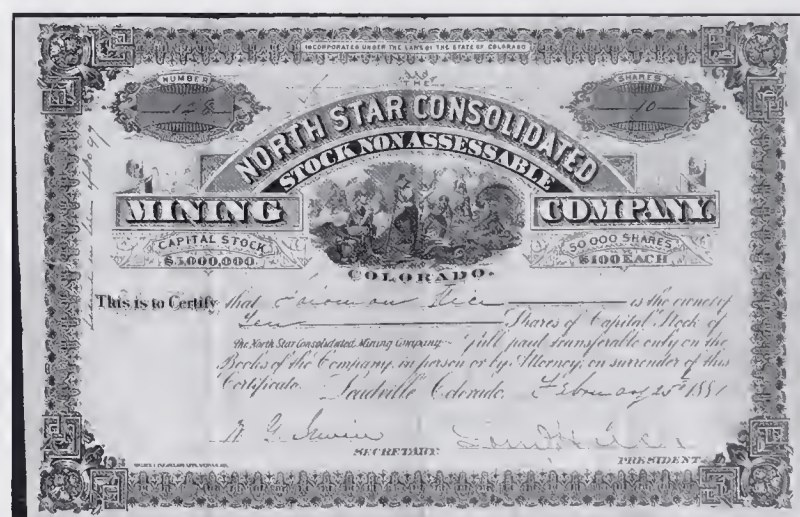 INCORPORATED UNDER THE LAWS OF THE STATE OF COLORADO
NUMBER
128
SHARES
10
THE
NORTH STAR CONSOLIDATED
STOCK NON ASSESSABLE
MINING COMPANY.
CAPITAL STOCK
$5,000,000.
50 000 SHARES
$100 EACH
COLORADO.
This is to Certify that is the owner of
Ten Shares of Capital Stock of
The North Star Consolidated Mining Company full paid transferable only on the
Books of the Company, in person or by Attorney, on surrender of this
Certificate. Leadville Colorado. February 25th 1881
SECRETARY
PRESIDENT